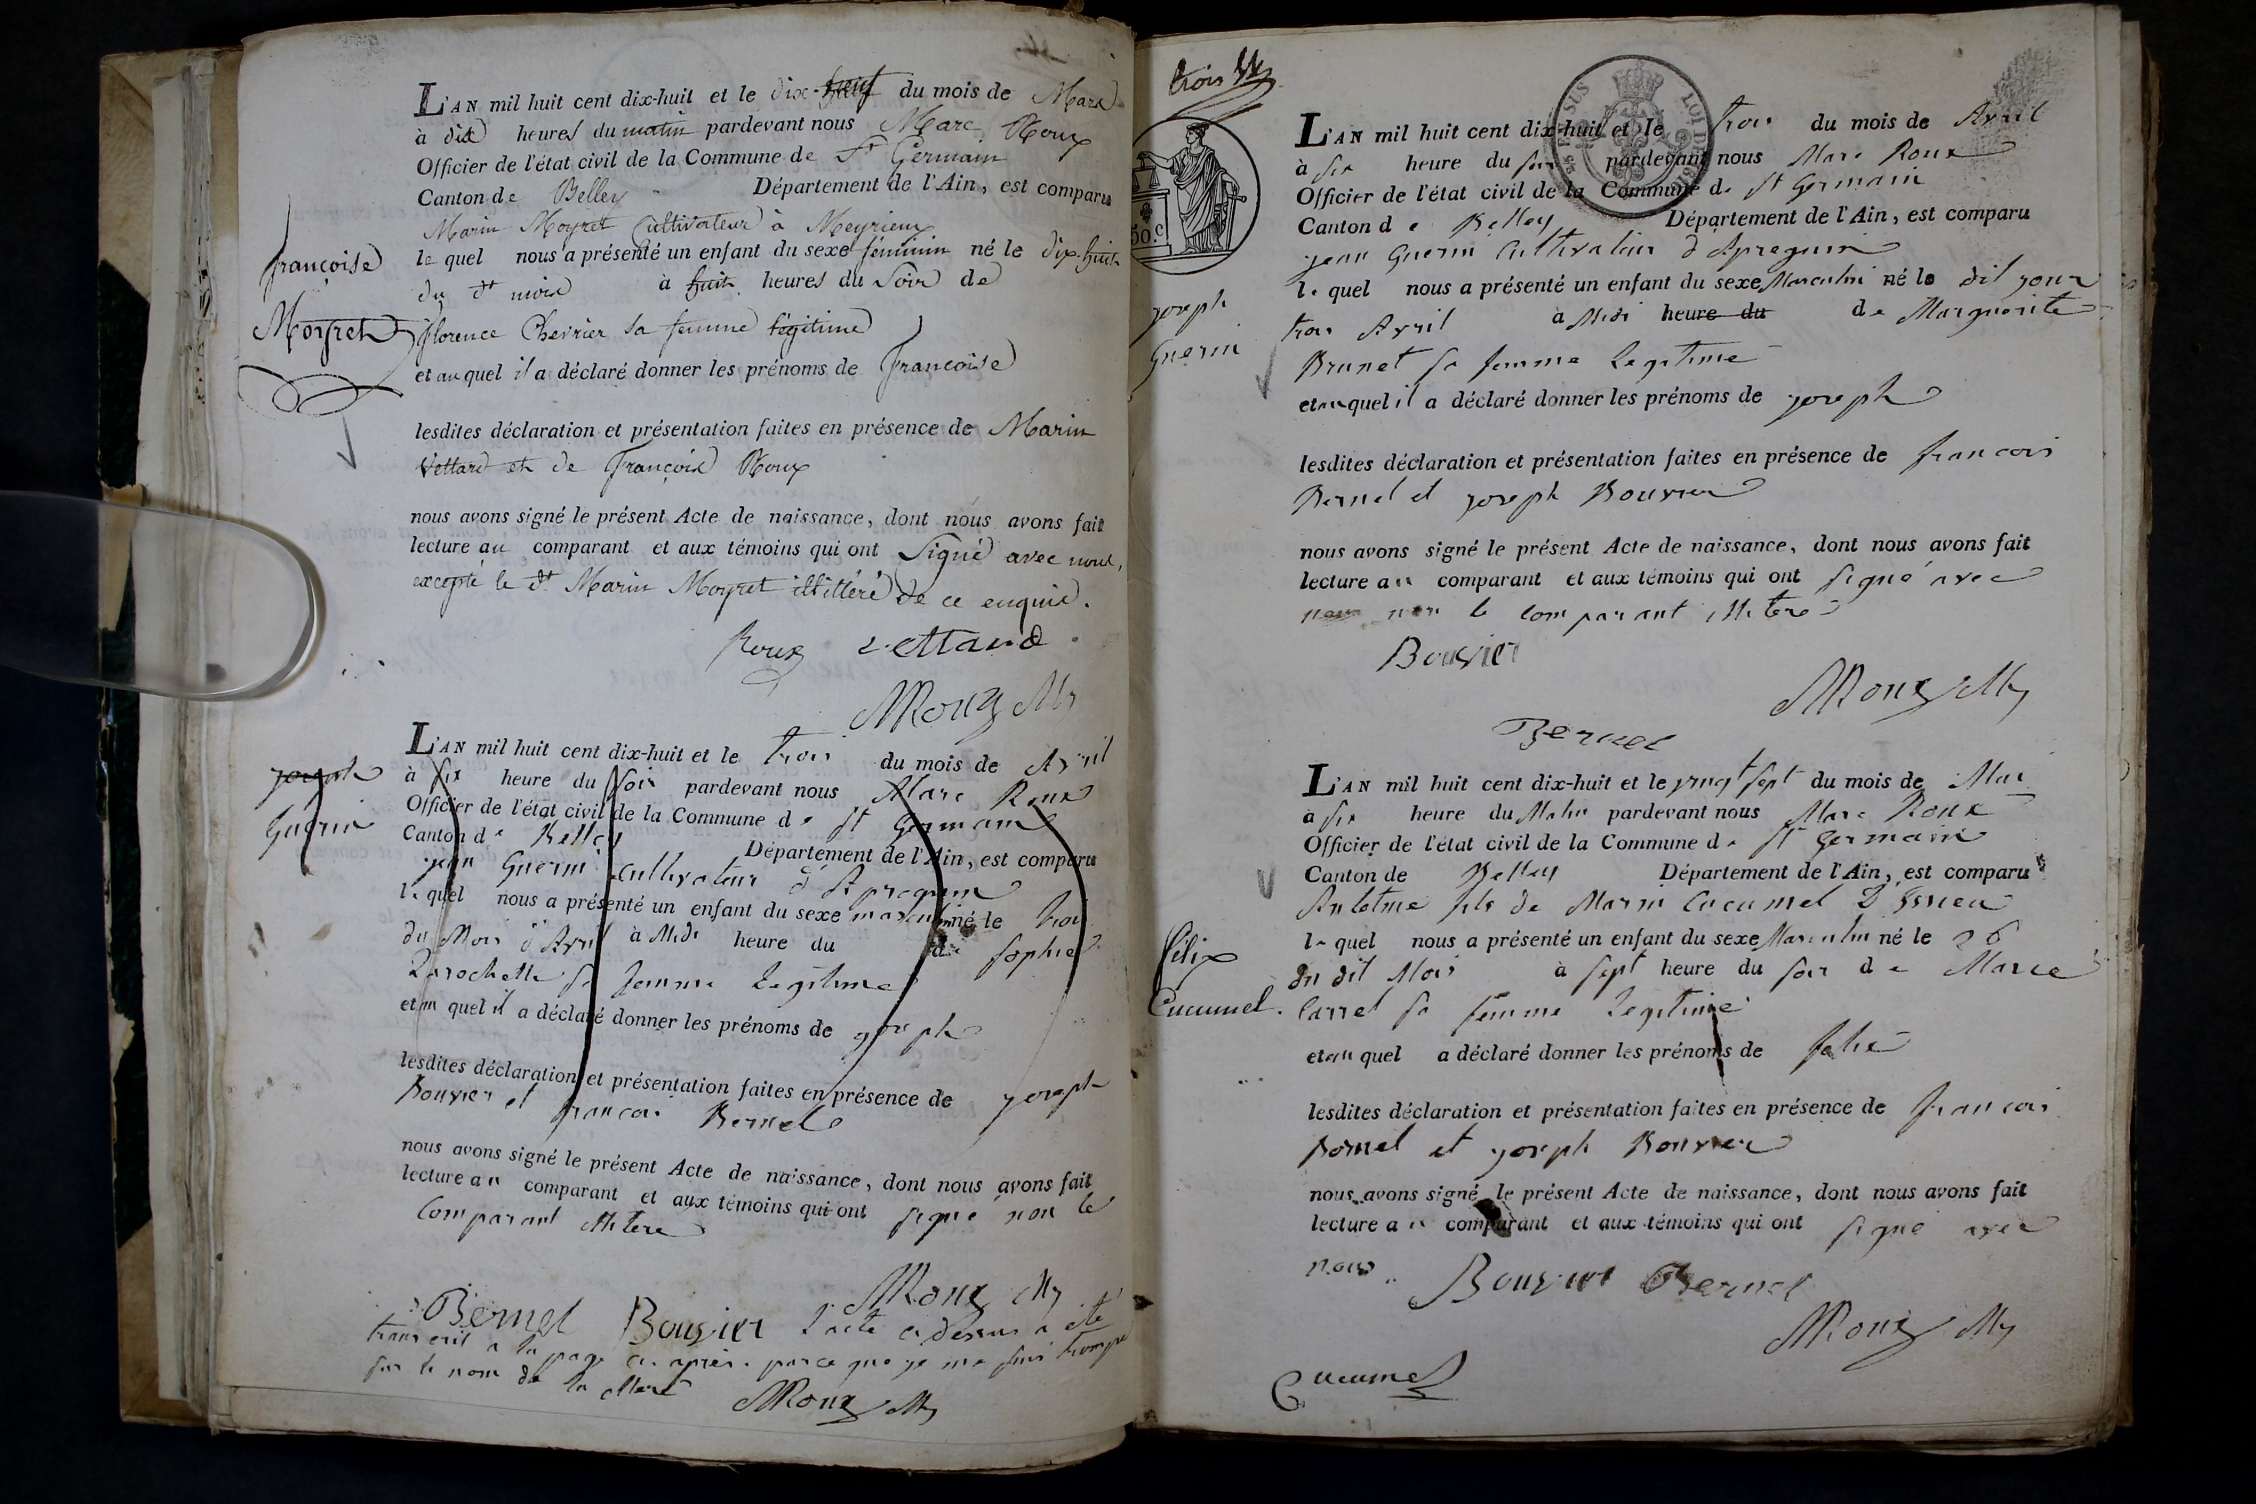 L'AN mil huit cent dix-huit et le dix-neuf du mois de Mars
à dix heures du matin pardevant nous Marc Roux
Officier de l'état civil de la Commune de St Germain
Canton de Belley Département de l'Ain, est comparu
Marin Moyret Cultivateur à Meyrieux
le quel nous a présenté un enfant du sexe féminin né le dix-huit
du dt mois à huit heures du Soir de
florence Chevrier sa femme légitime
et au quel il a déclaré donner les prénoms de françoise
lesdites déclaration et présentation faites en présence de Marin
Vettard et de François Roux
nous avons signé le présent Acte de naissance, dont nous avons fait
lecture au comparant et aux témoins qui ont Signé avec nous,
excepté le dt Marin Moyret illittéré de ce enquis.
Roux Vettard
MRoux
françoise
Moyret
L'AN mil huit cent dix-huit et le trois du mois de Avril
à six heure du soir pardevant nous Marc Roux
Officier de l'état civil de la Commune de st Germain
Canton de Belley Département de l'Ain, est comparu
jean Guerin Cultivateur d'Apregnin
le quel nous a présenté un enfant du sexe masculin né le trois
du Mois d'Avril à Midi heure du de sophie
Larochette sa femme Legitime
et au quel il a déclaré donner les prénoms de joseph
lesdites déclaration et présentation faites en présence de joseph
Bouvier et francois Bernel
nous avons signé le présent Acte de naissance, dont nous avons fait
lecture au comparant et aux témoins qui ont signé non le
Comparant illitere
MRoux
Bernel Bouvier L'acte ci dessus a été
transcrit a la page ci après. parce que je me suis trompé
sur le nom de la Mere
MRoux
joseph
Guerin
trois
50.c
LOI DE 1816
L'AN mil huit cent dix-huit et le trois du mois de Avril
à six heure du soir pardevant nous Marc Roux
Officier de l'état civil de la Commune de st Germain
Canton de Belley Département de l'Ain, est comparu
jean Guerin Cultivateur d'Apregnin
le quel nous a présenté un enfant du sexe Masculin né le dit jour
trois Avril à Midi heure du de Marguerite
Brunet sa femme Legitime
et au quel il a déclaré donner les prénoms de joseph
lesdites déclaration et présentation faites en présence de francois
Bernel et joseph Bouvier
nous avons signé le présent Acte de naissance, dont nous avons fait
lecture au comparant et aux témoins qui ont signé avec
nous non le comparant illitere
Bouvier
MRoux
Bernel
joseph
Guerin
L'AN mil huit cent dix-huit et le vingt sept du mois de Mai
à six heure du Matin pardevant nous Marc Roux
Officier de l'état civil de la Commune de st Germain
Canton de Belley Département de l'Ain, est comparu
Antelme fils de Marin Cucumel
le quel nous a présenté un enfant du sexe Masculin né le 26
du dit Mois à sept heure du soir de Marie
Carrel sa femme Legitime
et au quel a déclaré donner les prénoms de felix
lesdites déclaration et présentation faites en présence de francois
Bernel et joseph Bouvier
nous avons signé le présent Acte de naissance, dont nous avons fait
lecture au comparant et aux témoins qui ont signé avec
nous
Bouvier Bernel
MRoux
Cucumel
félix
Cucumel.